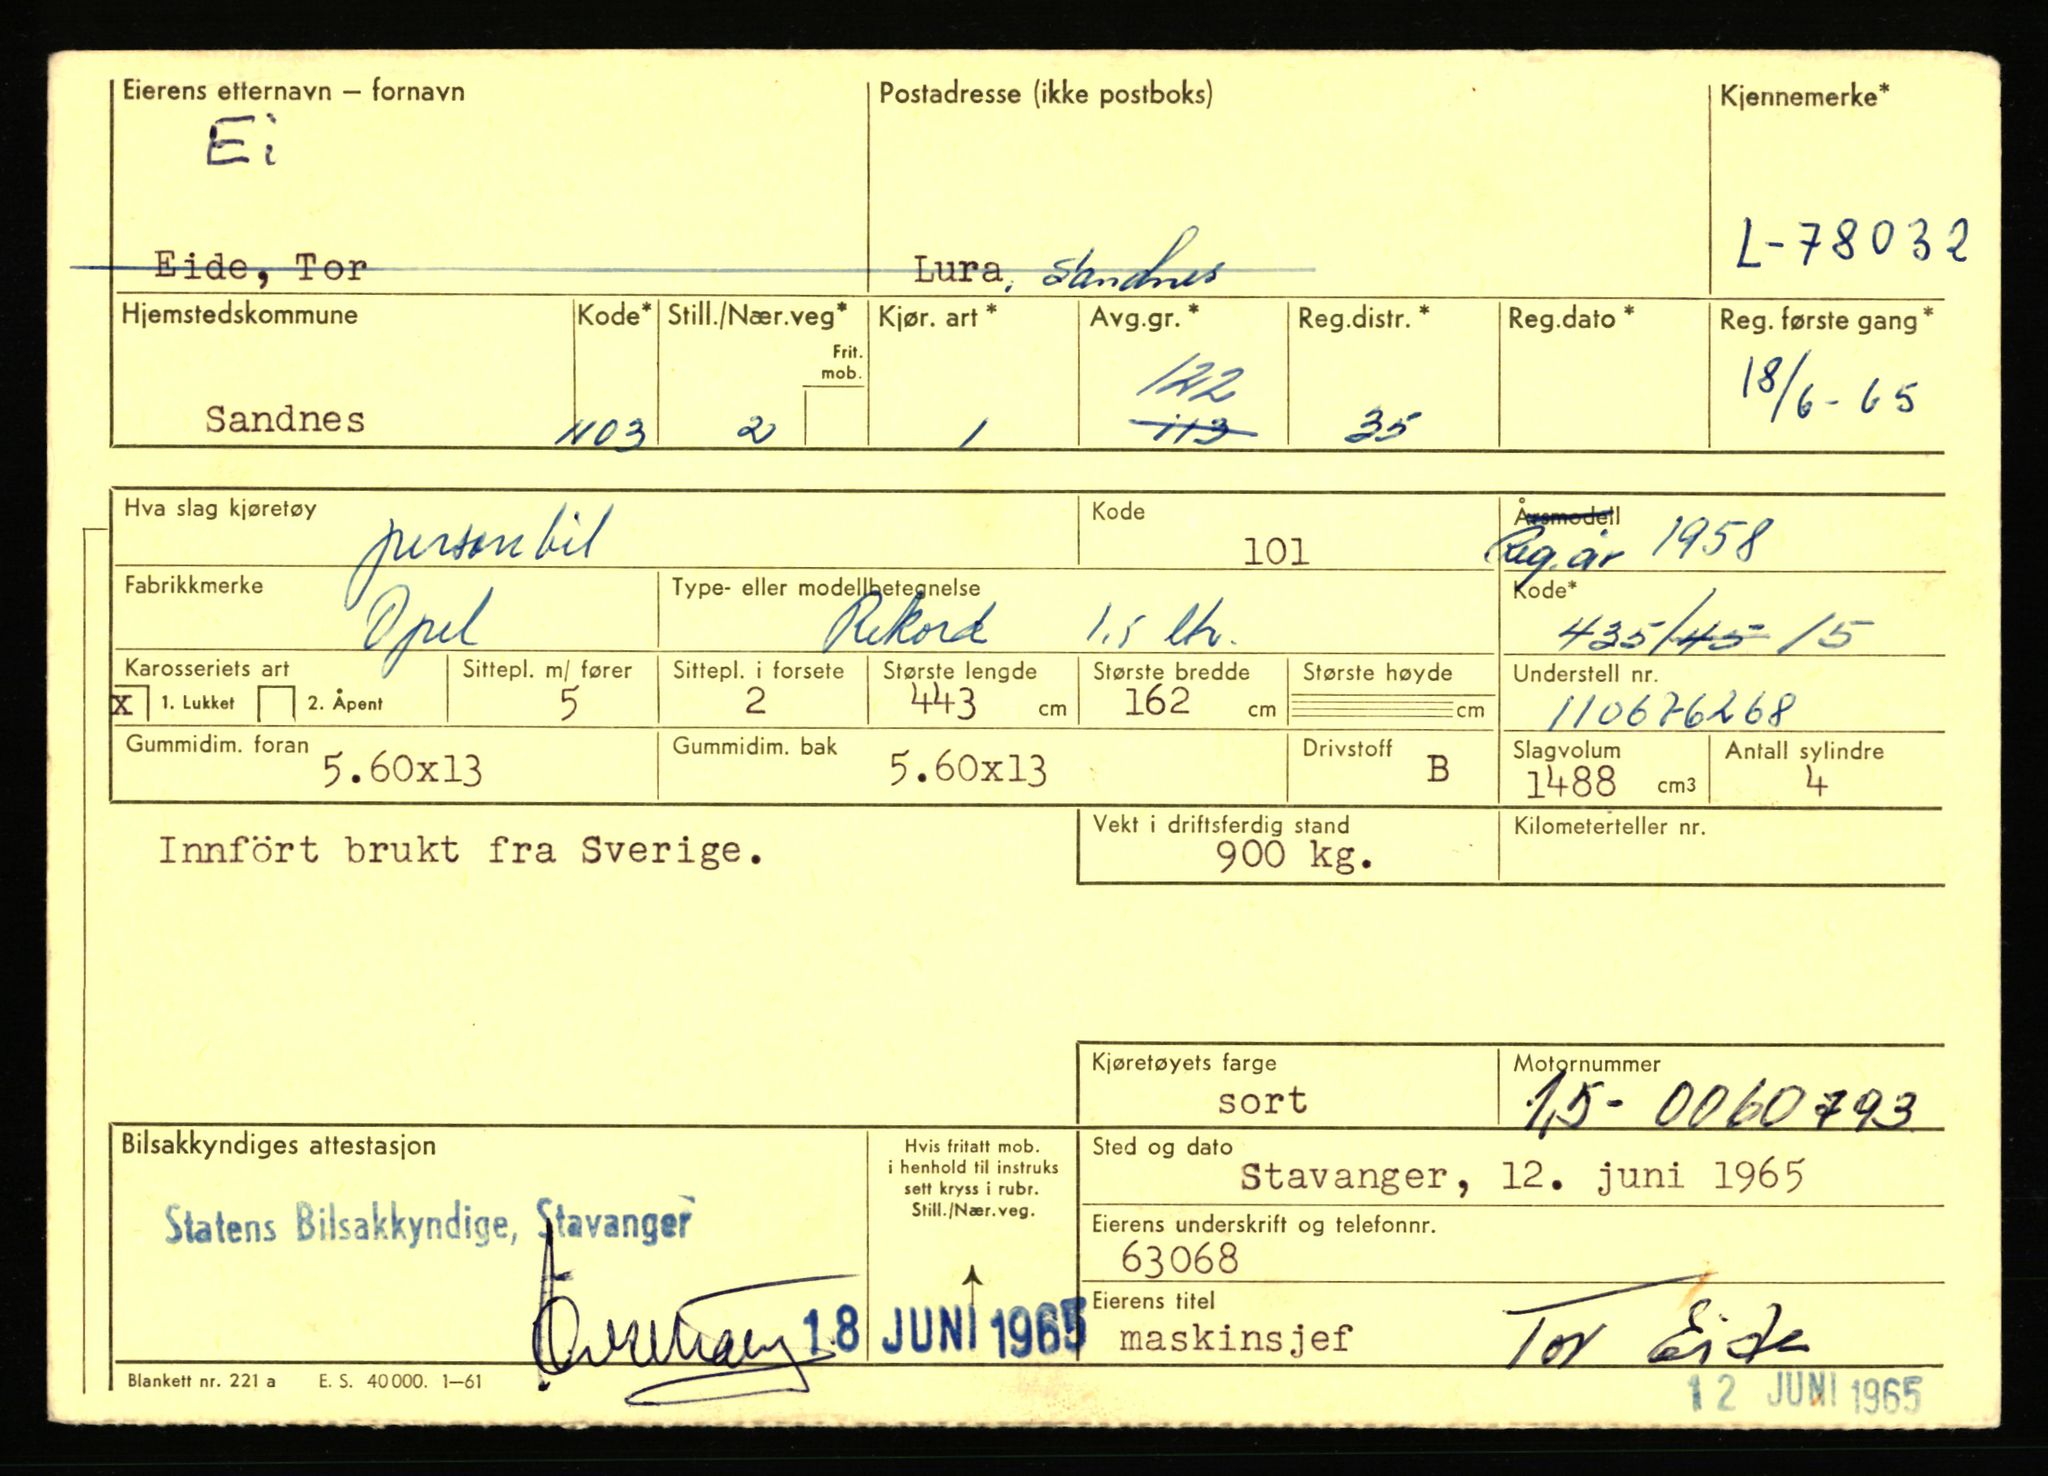 Eierens etternavn – fornavn
Postadresse (ikke postboks)
Kjennemerke*
Ei
L-78032
Eide, Tor
Lura, Sandnes
Hjemstedskommune
Kode*
Still./Nær.veg*
Kjør. art*
Avg.gr.*
Reg.distr.*
Reg.dato*
Reg. første gang*
Frit.
mob.
122
18/6-65
Sandnes
1103
2
1
113
35
Hva slag kjøretøy
personbil
Kode
101
Årsmodell
Reg.år 1958
Fabrikkmerke
Opel
Type- eller modellbetegnelse
Rekord 1,5 ltr.
Kode*
435/45/5
Karosseriets art
X 1. Lukket
2. Åpent
Sittepl. m/ fører
5
Sittepl. i forsete
2
Største lengde
443 cm
Største bredde
162 cm
Største høyde
cm
Understell nr.
110676268
Gummidim. foran
5.60x13
Gummidim. bak
5.60x13
Drivstoff
B
Slagvolum
1488 cm3
Antall sylindre
4
Innfört brukt fra Sverige.
Vekt i driftsferdig stand
900 kg.
Kilometerteller nr.
Kjøretøyets farge
sort
Motornummer
1,5-0060793
Bilsakkyndiges attestasjon
Statens Bilsakkyndige, Stavanger
Hvis fritatt mob.
i henhold til instruks
sett kryss i rubr.
Still./Nær.veg.
18 JUNI 1965
Sted og dato
Stavanger, 12. juni 1965
Eierens underskrift og telefonnr.
63068
Eierens titel
maskinsjef
Tor Eide
12 JUNI 1965
Blankett nr. 221 a E. S. 40 000. 1–61